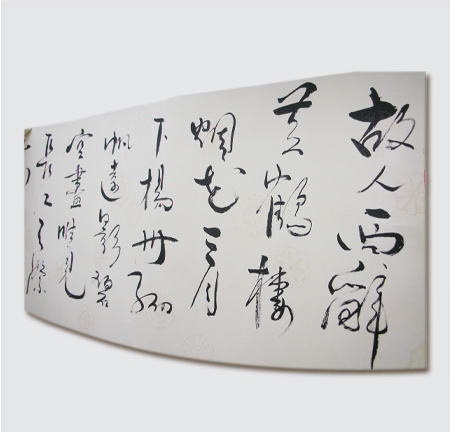 故人西辭
黄鶴樓
烟花三月
下楊州孤
帆遠影碧
空盡唯見
長江天際